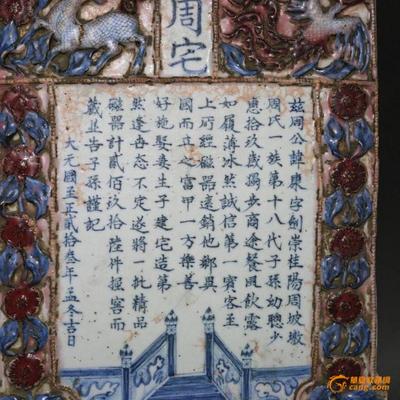 周宅
兹周公諱東字劍崇桂陽周坡墩
周氏一族第十八代子孫幼聰少
應拾玖歲獨步商途餐風飲露
如履薄冰然誠信第一賓客至
上所經磁器遠銷他鄉異
國而立之富甲一方樂善
好施娶妻生子建宅造第
然逢世态不定遂將一批精品
磁器計貳佰玖拾陸件掘窖而
藏並告子孫謹記
大元國至正貳拾叁年孟冬吉日
華夏收藏網
cang.com